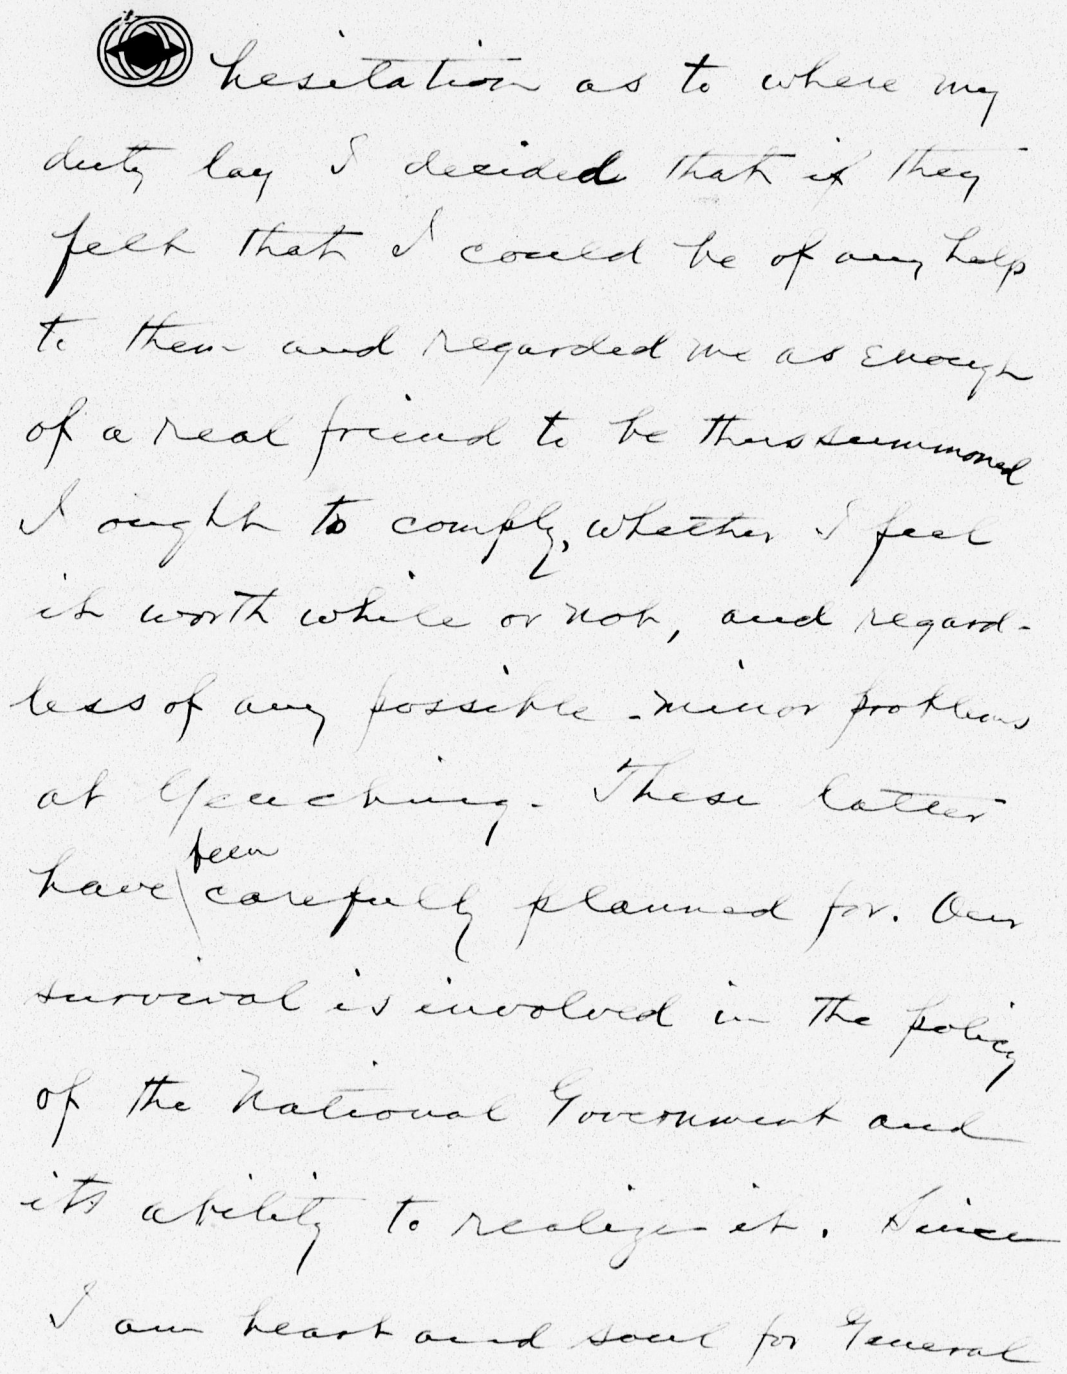 hesitation as to where my
duty lay I decided that if they
felt that I could be of any help
to them and regarded me as enough
of a real friend to be thus summoned
I ought to comply, whether I feel
it worth while or not, and regard-
less of any possible minor problems
at Yenching. These latter
been
have carefully planned for. Our
survival is involved in the policy
of the National Government and
its ability to realize it. Since
I am heart and soul for General